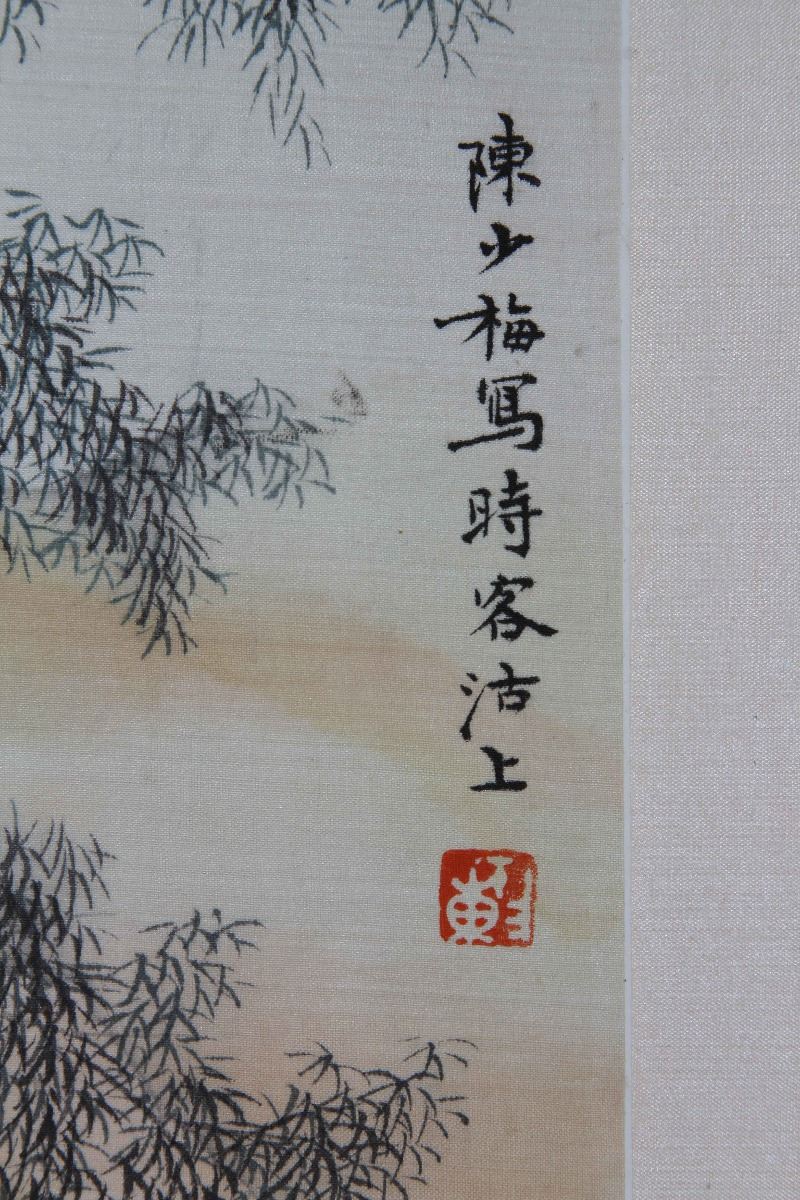 陳少梅寫時客沽上